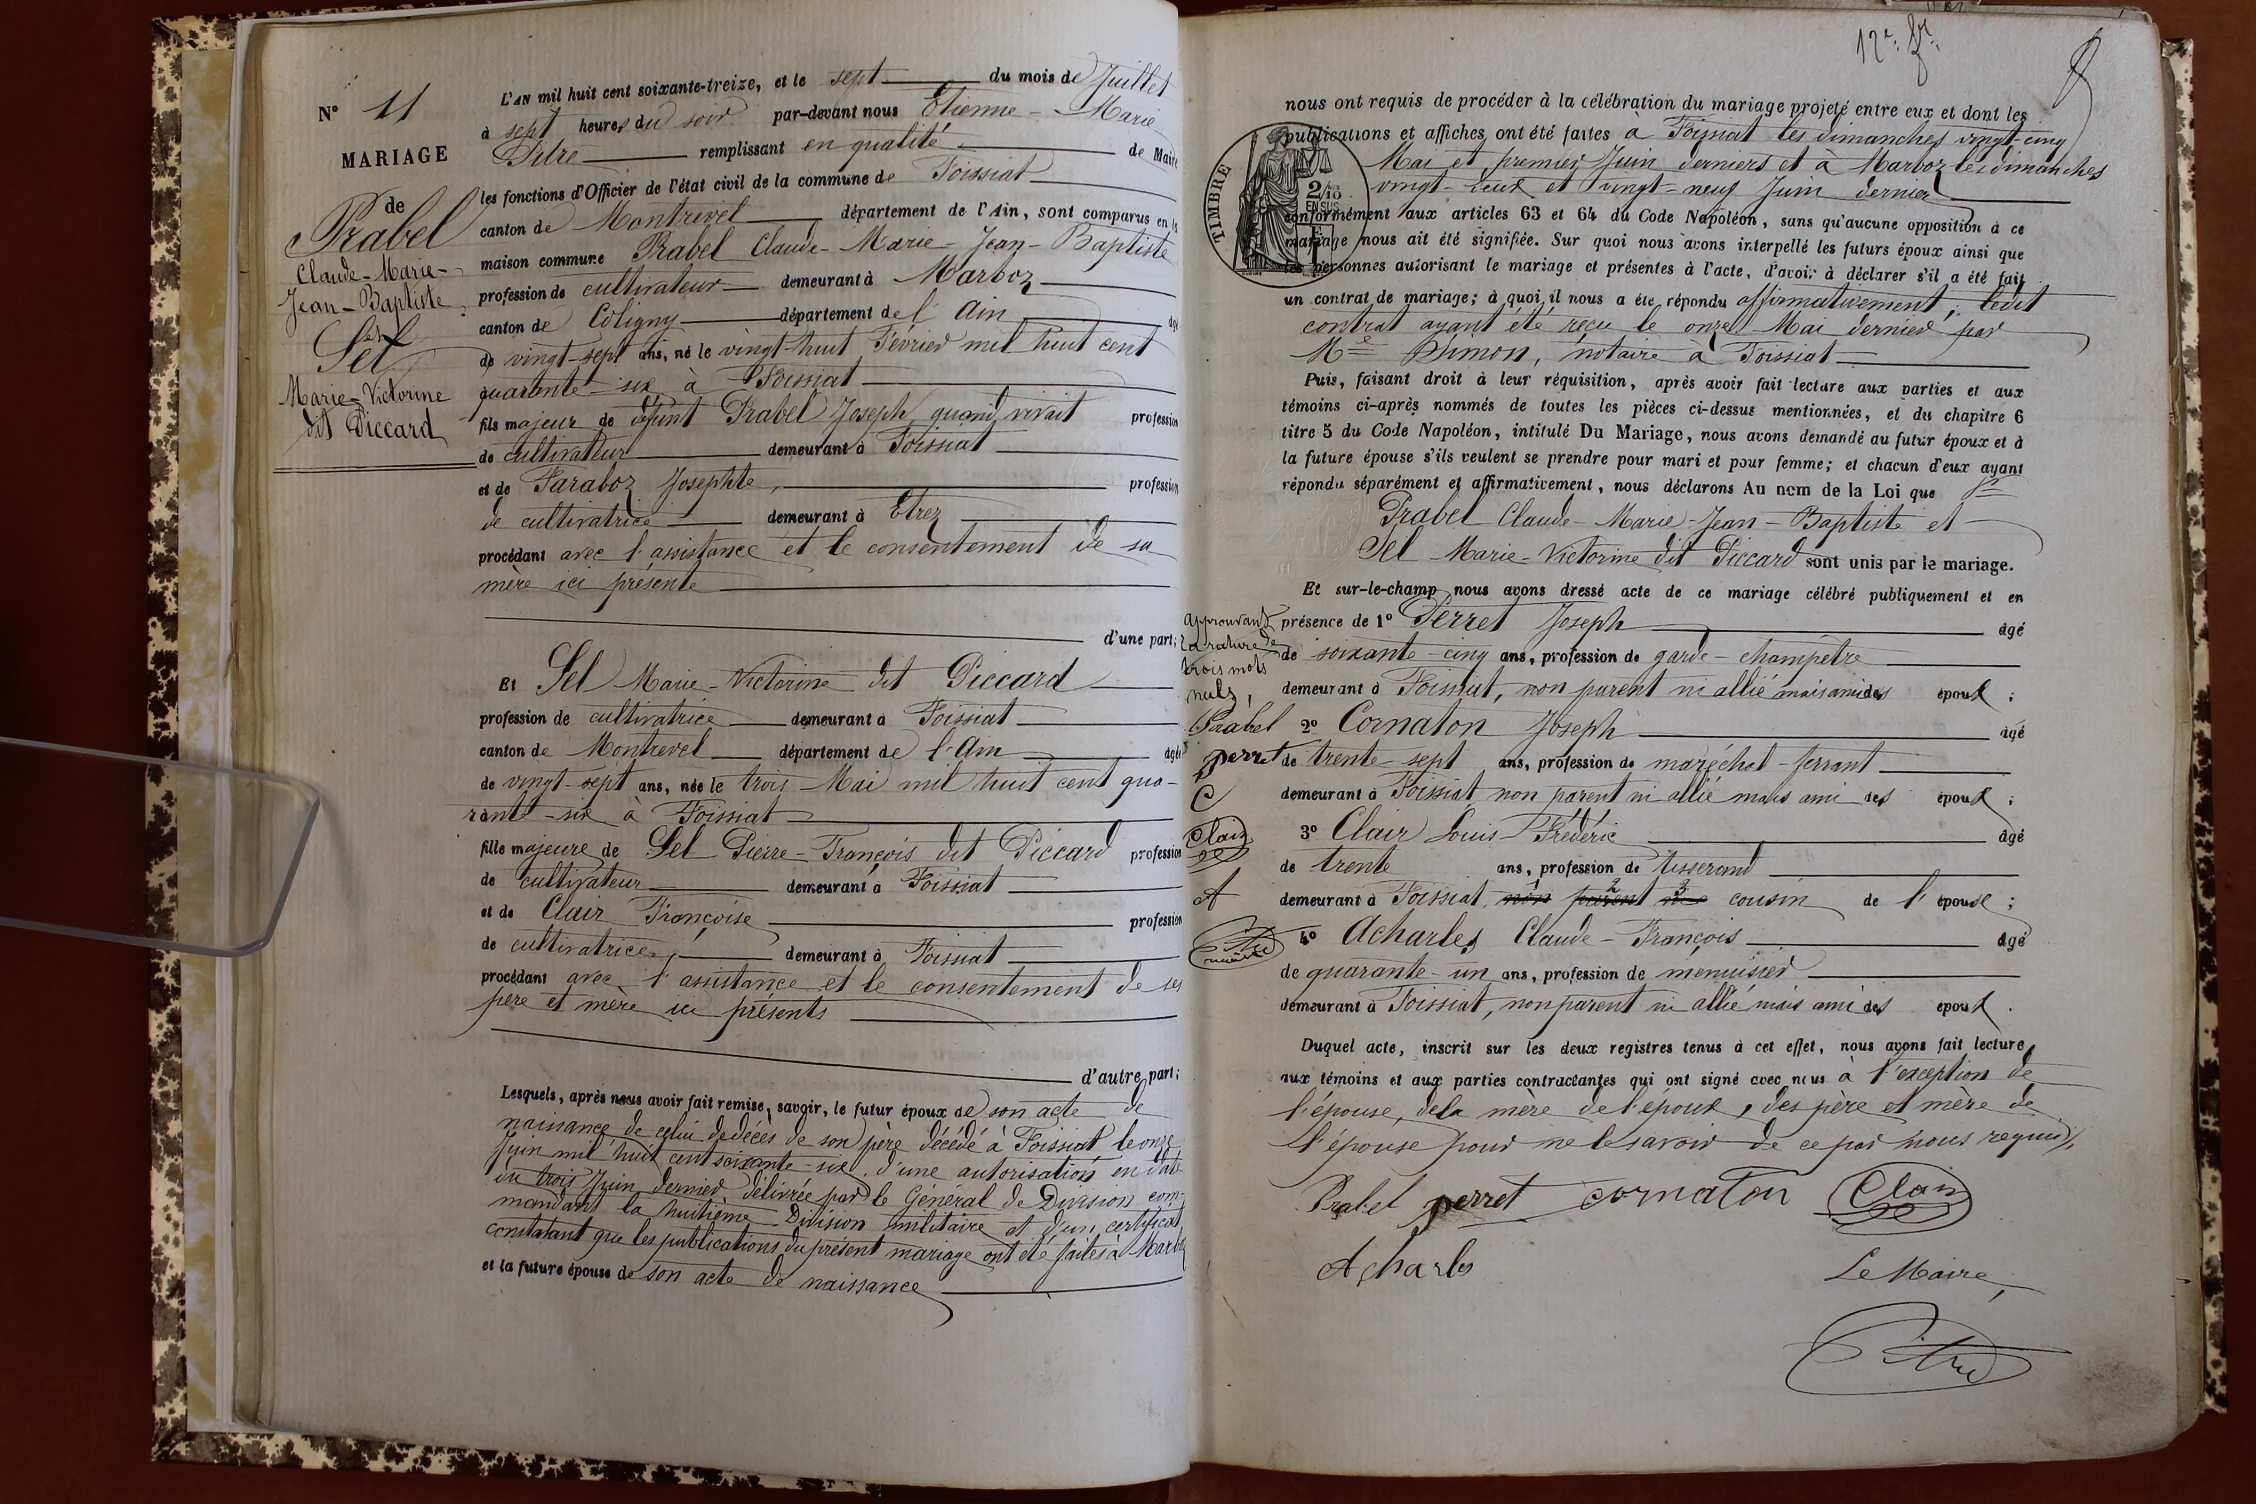 N° 11
MARIAGE
de
Prabel
Claude-Marie-
Jean-Baptiste
et
Sel
Marie-Victorine
dit Piccard
L'AN mil huit cent soixante-treize, et le sept du mois de Juillet
à sept heures du soir par-devant nous Etienne-Marie
Pitre remplissant en qualité de Maire
les fonctions d'Officier de l'état civil de la commune de Foissiat
canton de Montrevel département de l'Ain, sont comparus en la
maison commune Prabel Claude-Marie-Jean-Baptiste
profession de cultivateur demeurant à Marboz
canton de Coligny département de l'Ain âgé
de vingt-sept ans, né le vingt-huit Février mil huit cent
quarante-six à Foissiat
fils majeur de défunt Prabel Joseph quand vivait profession
de cultivateur demeurant à Foissiat
et de Faraboz Josephte, profession
de cultivatrice demeurant à Etrez
procédant avec l'assistance et le consentement de sa
mère ici présente
d'une part;
Et Sel Marie-Victorine dit Piccard
profession de cultivatrice demeurant à Foissiat
canton de Montrevel département de l'Ain âgée
de vingt-sept ans, née le trois Mai mil huit cent qua-
rante-six à Foissiat
fille majeure de Sel Pierre-François dit Piccard profession
de cultivateur demeurant à Foissiat
et de Clair Françoise profession
de cultivatrice, demeurant à Foissiat
procédant avec l'assistance et le consentement de ses
père et mère ici présents
d'autre part;
Lesquels, après nous avoir fait remise, savoir, le futur époux de son acte de
naissance de celui de décès de son père décédé à Foissiat le onze
Juin mil huit cent soixante-six, d'une autorisation en date
du trois Juin dernier délivrée par le Général de Division com-
mandant la huitième Division militaire et d'un certificat
constatant que les publications du présent mariage ont été faites à Marboz
et la future épouse de son acte de naissance
nous ont requis de procéder à la célébration du mariage projeté entre eux et dont les
publications et affiches ont été faites à Foissiat les dimanches vingt-cinq
Mai et premier Juin derniers et à Marboz les dimanches
vingt-deux et vingt-neuf Juin dernier
TIMBRE
2/10
EN SUS
conformément aux articles 63 et 64 du Code Napoléon, sans qu'aucune opposition à ce
mariage nous ait été signifiée. Sur quoi nous avons interpellé les futurs époux ainsi que
les personnes autorisant le mariage et présentes à l'acte, d'avoir à déclarer s'il a été fait
un contrat de mariage; à quoi il nous a été répondu affirmativement; ledit
contrat ayant été reçu le onze Mai dernier par
Me Simon, notaire à Foissiat
Puis, faisant droit à leur réquisition, après avoir fait lecture aux parties et aux
témoins ci-après nommés de toutes les pièces ci-dessus mentionnées, et du chapitre 6
titre 5 du Code Napoléon, intitulé Du Mariage, nous avons demandé au futur époux et à
la future épouse s'ils veulent se prendre pour mari et pour femme; et chacun d'eux ayant
répondu séparément et affirmativement, nous déclarons Au nom de la Loi que
Prabel Claude-Marie-Jean-Baptiste et
Sel Marie-Victorine dit Piccard sont unis par le mariage.
Et sur-le-champ nous avons dressé acte de ce mariage célébré publiquement et en
présence de 1° Perret Joseph âgé
de soixante-cinq ans, profession de garde-champêtre
demeurant à Foissiat, non parent ni allié mais ami des époux;
2° Cornaton Joseph âgé
de trente-sept ans, profession de maréchal-ferrant
demeurant à Foissiat non parent ni allié mais ami des époux;
3° Clair Louis-Frédéric âgé
de trente ans, profession de tisserand
demeurant à Foissiat non parent cousin de l'épouse;
4° Acharles Claude-François âgé
de quarante-un ans, profession de menuisier
demeurant à Foissiat, non parent ni allié mais ami des époux.
Duquel acte, inscrit sur les deux registres tenus à cet effet, nous avons fait lecture
aux témoins et aux parties contractantes qui ont signé avec nous à l'exception de
l'épouse, de la mère de l'époux, des père et mère de
l'épouse pour ne le savoir de ce par nous requis
approuvant
la rature de
trois mots
nuls,
Prabel
perret
C
Clair
A
Prabel perret cornaton Clair
Acharles
Le Maire,
Pitre